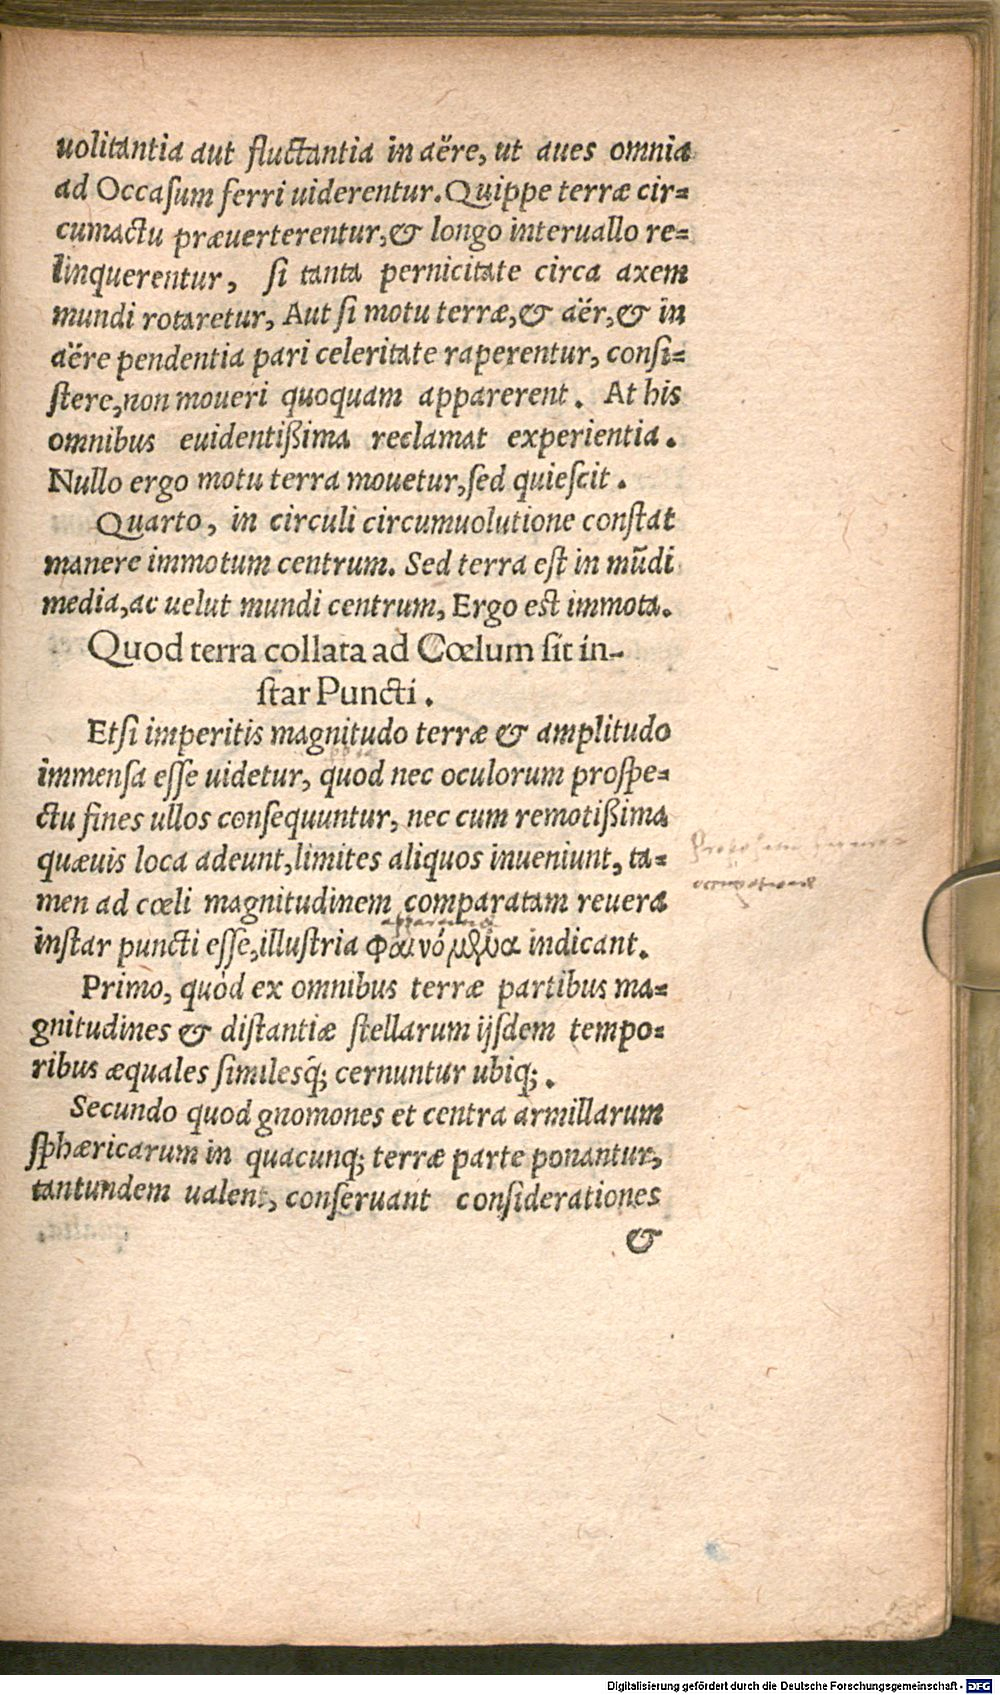 uolitantia aut fluctantia in aëre, ut aues omnia
ad Occaſum ferri uiderentur. Quippe terræ cir-
cumactu præuerterentur, & longo interuallo re-
linquerentur, ſi tanta pernicitate circa axem
mundi rotaretur, Aut ſi motu terræ, & aër, & in
aëre pendentia pari celeritate raperentur, conſi-
ſtere, non moueri quoquam apparerent. At his
omnibus euidentißima reclamat experientia.
Nullo ergo motu terra mouetur, ſed quieſcit.
Quarto, in circuli circumuolutione conſtat
manere immotum centrum. Sed terra eſt in mūdi
media, ac uelut mundi centrum, Ergo est immota.
Quod terra collata ad Cœlum ſit in-
ſtar Puncti.
Etſi imperitis magnitudo terræ & amplitudo
immenſa eſſe uidetur, quod nec oculorum proſpe-
ctu fines ullos conſequuntur, nec cum remotißima
quæuis loca adeunt, limites aliquos inueniunt, ta-
men ad cœli magnitudinem comparatam reuera
apparentia
inſtar puncti eſſe, illuſtria φαινόμενα indicant.
Primo, quòd ex omnibus terræ partibus ma-
gnitudines & diſtantiæ ſtellarum ijſdem tempo-
ribus æquales ſimilesq́; cernuntur ubiq;.
Secundo quod gnomones et centra armillarum
ſphæricarum in quacunq; terræ parte ponantur,
tantundem ualent, conſeruant conſiderationes
&
Digitalisierung gefördert durch die Deutsche Forschungsgemeinschaft - DFG